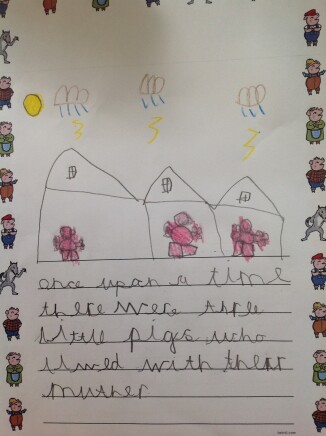 once upon a time
there were thre
little pigs who
lived with their
muther